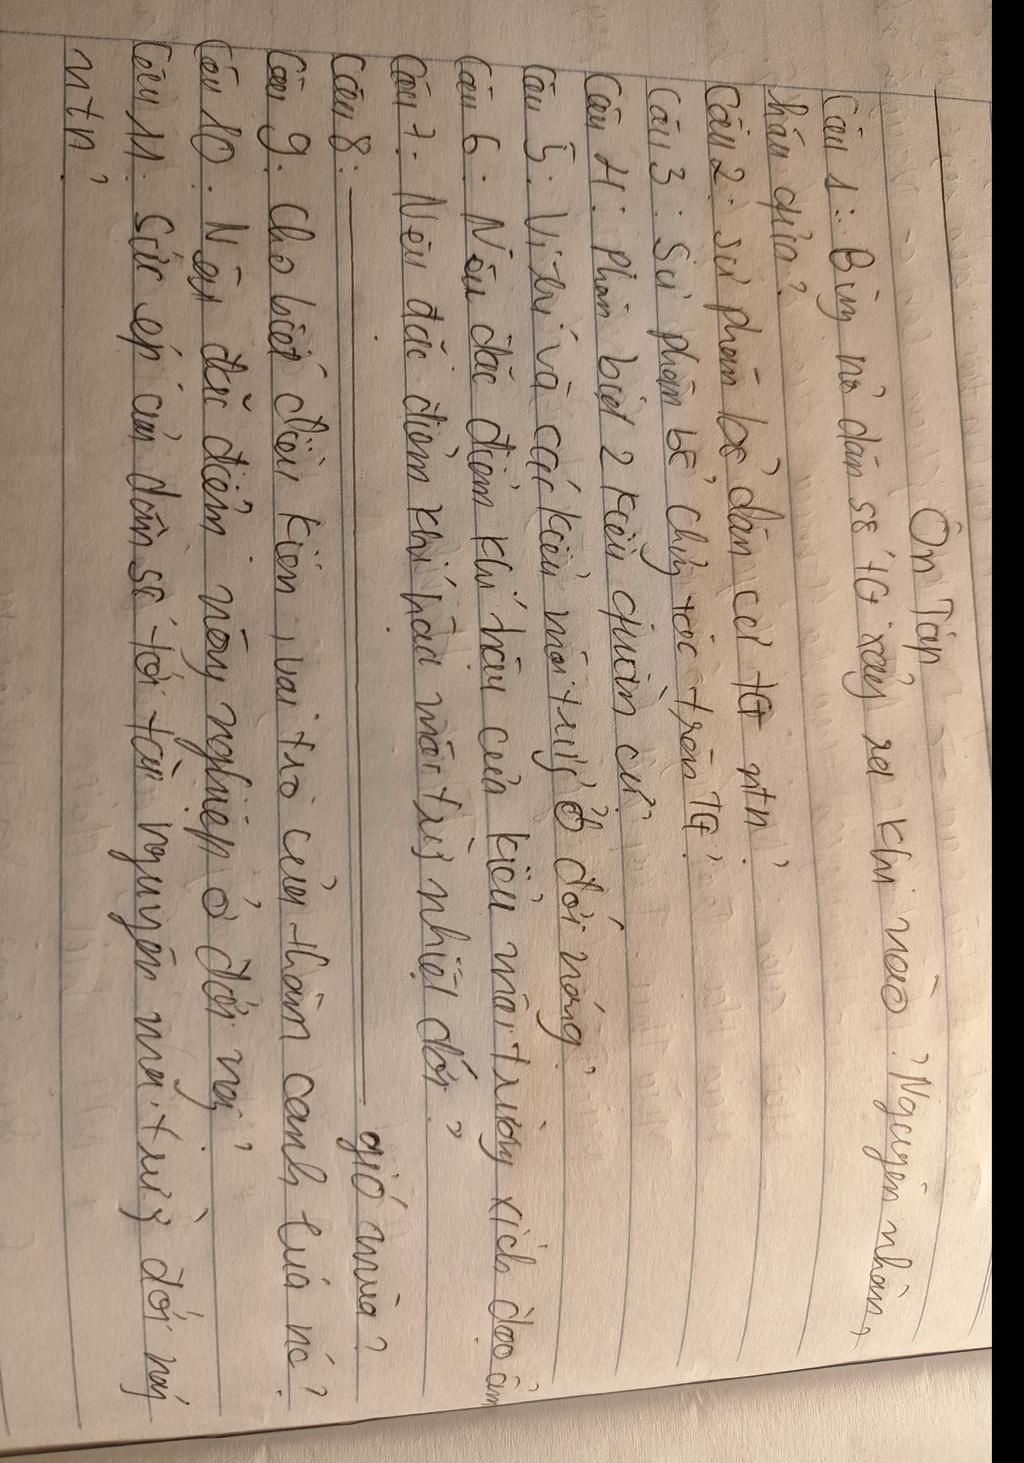 Ôn Tập
Câu 1: Bùng nổ dân số TG xảy ra khi nào? Nguyên nhân,
hậu quả?
Câu 2: sự phân bố dân cư TG ntn?
Câu 3: Sự phân bố chủng tộc trên TG?
Câu 4: Phân biệt 2 kiểu quần cư
Câu 5: Vị trí và các kiểu môi trườg ở đới nóng?
Câu 6: Nêu đặc điểm khí hậu của kiểu môi trường xích đạo ẩm
Câu 7: Nêu đặc điểm khí hậu môi trườg nhiệt đới?
Câu 8: gió mùa?
Câu 9: Cho biết điều kiện, vai trò của thâm canh lúa nc?
Câu 10: Nêu đặc điểm nông nghiệp ở đới nóg?
Câu 11: Sức ép của dân số tới tài nguyên môi trườg đới nóg
ntn?